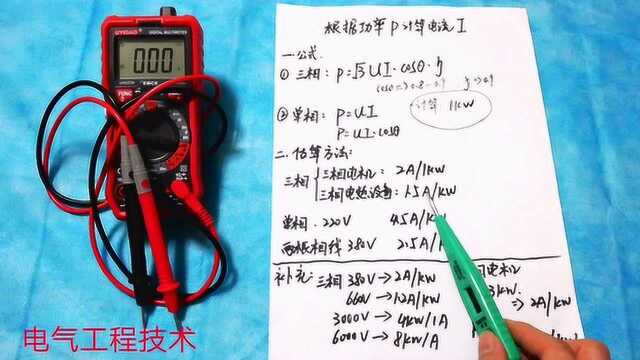 UYIGAO
DIGITAL MULTIMETER
000
FUNC
根据功率P计算电流I
一.公式
① 三相: P=√3UI·cosθ·η
cosθ=>0.8-0.9 η=>0.9
② 单相: P=UI
计算 11KW
P=UI·cosθ
二.估算方法:
三相 { 三相电机: 2A/1KW
三相电热设备: 1.5A/KW
单相.220V 4.5A/KW
两根相线380V 2.5A/
补充: 三相 380V→2A/KW
电机
660V→1.2A/KW
3KW
=> 2A/KW
3000V→4KW/1A
6000V→8KW/A
电气工程技术